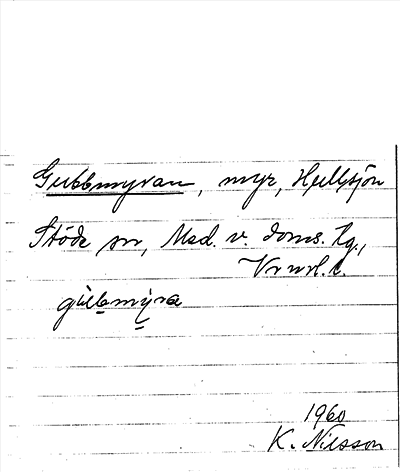 Gubbmyran, myr, Hullsjön
Stöde sn, Med. v. doms. tg.,
Vrnrl. l.
gubmýra
1960
K. Nilsson